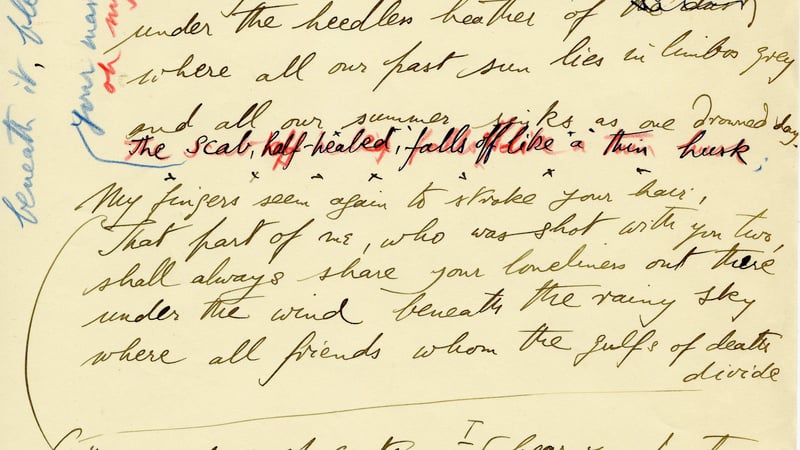 under the heedless heather of
where all our past sun lies in limbos grey
and all our summer sinks as one drowned day.
The scab, half-healed, falls off like a thin husk;
My fingers seem again to stroke your hair,
That part of me, who was shot with you two,
shall always share your loneliness out there
under the wind beneath the rainy sky
where all friends whom the gulfs of death
divide
I
beneath it,
your
oh